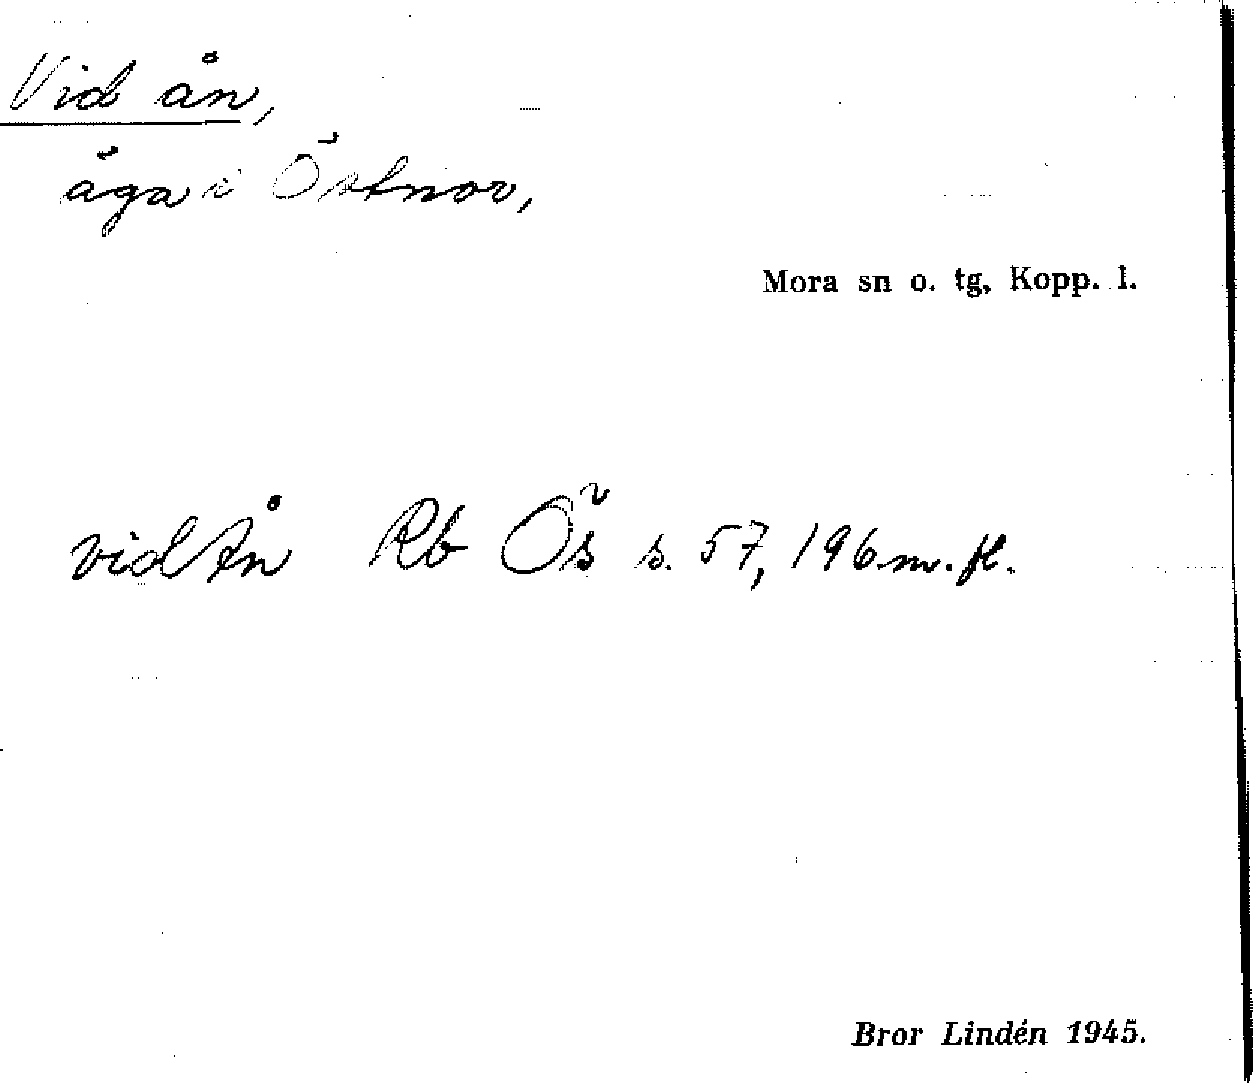 Vid ån,
äga i Östnor,
Mora sn o. tg, Kopp. l.
vid Ån Rb Ös s. 57, 196 m. fl.
Bror Lindén 1945.